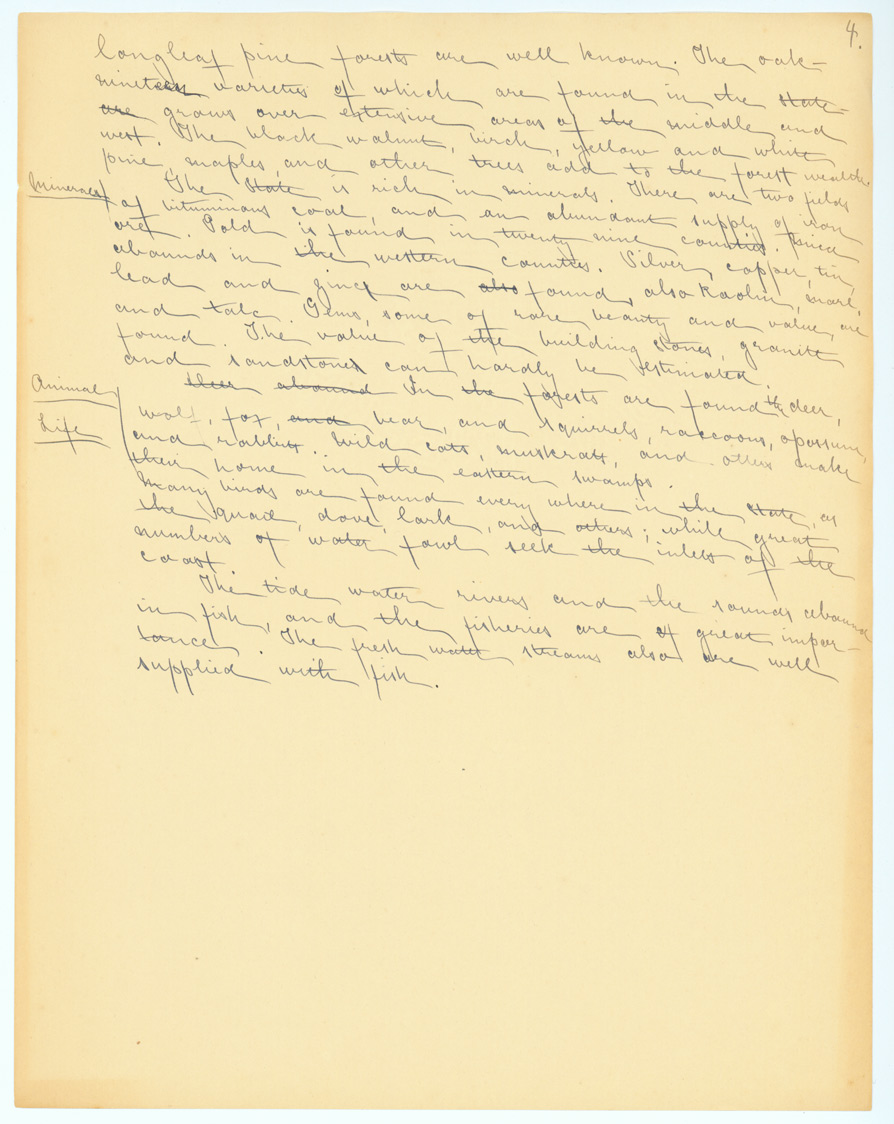 4.
longleaf pine forests are well known. The oak—
nineteen varieties of which are found in the state—
are grows over extensive areas of the middle and
west. The black walnut, birch, yellow and white
pine, maples, and other trees add to the forest wealth.
Minerals
The State is rich in minerals. There are two fields
of bituminous coal, and an abundant supply of iron
ore. Gold is found in twenty nine counties. Mica
abounds in the western counties. Silver, copper, tin,
lead and zinc are also found, also Kaolin, marl,
and talc. Gems, some of rare beauty and value, are
found. The value of the building stones, granite
and sandstones can hardly be estimated.
Animal
Life
deer abound In the forests are found the deer,
wolf, fox, and bear, and squirrels, raccoons, opossums,
and rabbits. Wild cats, muskrats, and otters make
their home in the eastern swamps.
Many birds are found every where in the state, as
the quail, dove, lark, and others; while great
numbers of water fowl seek the inlets of the
coast.
The tide water rivers and the sounds abound
in fish, and the fisheries are of great impor-
tance. The fresh water streams also are well
supplied with fish.